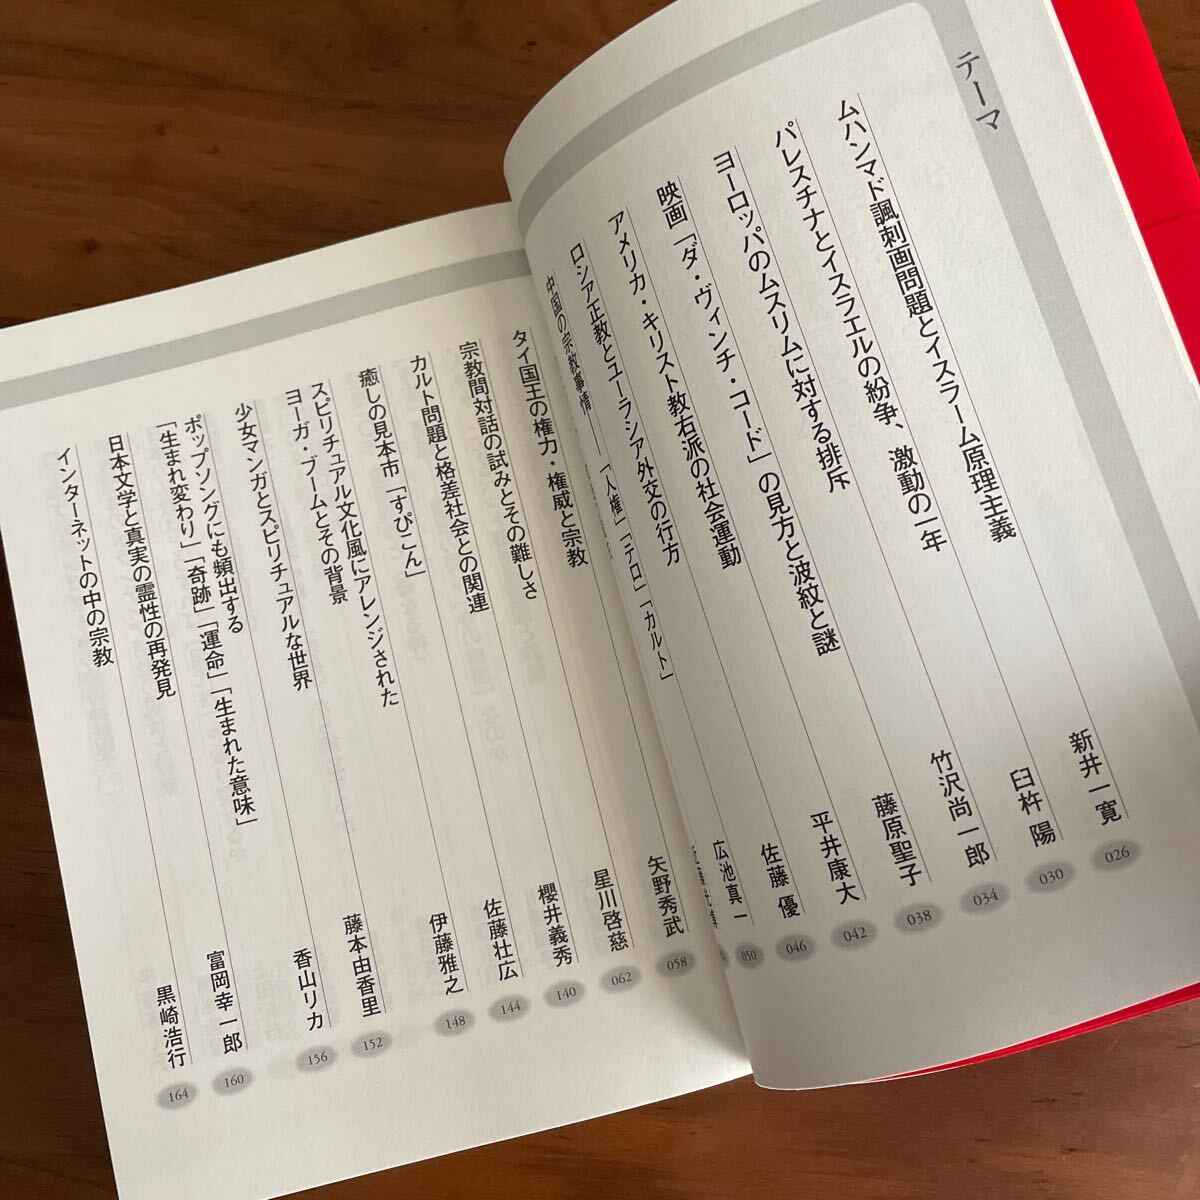 テーマ
ムハンマド諷刺画問題とイスラーム原理主義
新井一寛
026
パレスチナとイスラエルの紛争、激動の一年
臼杵 陽
030
ヨーロッパのムスリムに対する排斥
竹沢尚一郎
034
映画「ダ・ヴィンチ・コード」の見方と波紋と謎
藤原聖子
038
アメリカ・キリスト教右派の社会運動
平井康大
042
ロシア正教とユーラシア外交の行方
佐藤 優
046
中国の宗教事情——「人権」「テロ」「カルト」
広池真一
050
タイ国王の権力・権威と宗教
矢野秀武
058
宗教間対話の試みとその難しさ
星川啓慈
062
カルト問題と格差社会との関連
櫻井義秀
140
癒しの見本市「すぴこん」
佐藤壮広
144
スピリチュアル文化風にアレンジされた
ヨーガ・ブームとその背景
伊藤雅之
148
少女マンガとスピリチュアルな世界
藤本由香里
152
ポップソングにも頻出する
「生まれ変わり」「奇跡」「運命」「生まれた意味」
香山リカ
156
日本文学と真実の霊性の再発見
富岡幸一郎
160
インターネットの中の宗教
黒崎浩行
164